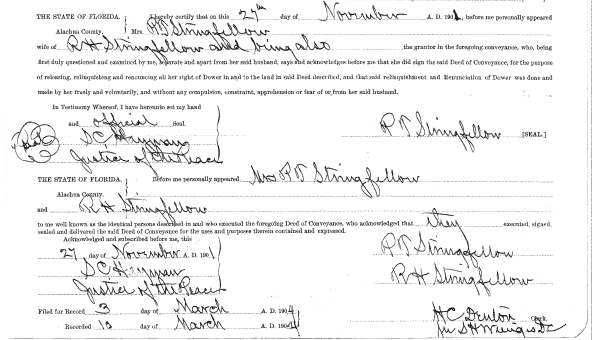 THE STATE OF FLORIDA. I hereby certify that on this 27th day of November A. D. 1901, before me personally appeared
Alachua County. Mrs. R T Stringfellow
wife of R H Stringfellow and being also the grantor in the foregoing conveyance, who, being
first duly questioned and examined by me, separate and apart from her said husband, says and acknowledges before me that she did sign the said Deed of Conveyance, for the purpose
of releasing, relinquishing and renouncing all her right of Dower in and to the land in said Deed described, and that said relinquishment and Renunciation of Dower was done and
made by her freely and voluntarily, and without any compulsion, constraint, apprehension or fear of or from her said husband.
In Testimony Whereof, I have hereunto set my hand
and official Seal.
S C Hayman R T Stringfellow [SEAL.]
Justice of the Peace
THE STATE OF FLORIDA. Before me personally appeared Mrs R T Stringfellow
Alachua County.
and R H Stringfellow
to me well known as the identical persons described in and who executed the foregoing Deed of Conveyance, who acknowledged that they executed, signed,
sealed and delivered the said Deed of Conveyance for the uses and purposes therein contained and expressed.
Acknowledged and subscribed before me, this
27 day of November A. D. 1901 R T Stringfellow
S C Hayman R H Stringfellow
Justice of the Peace
Filed for Record 3 day of March A. D. 1904 H C Denton Clerk.
Recorded 12 day of March A. D. 1904